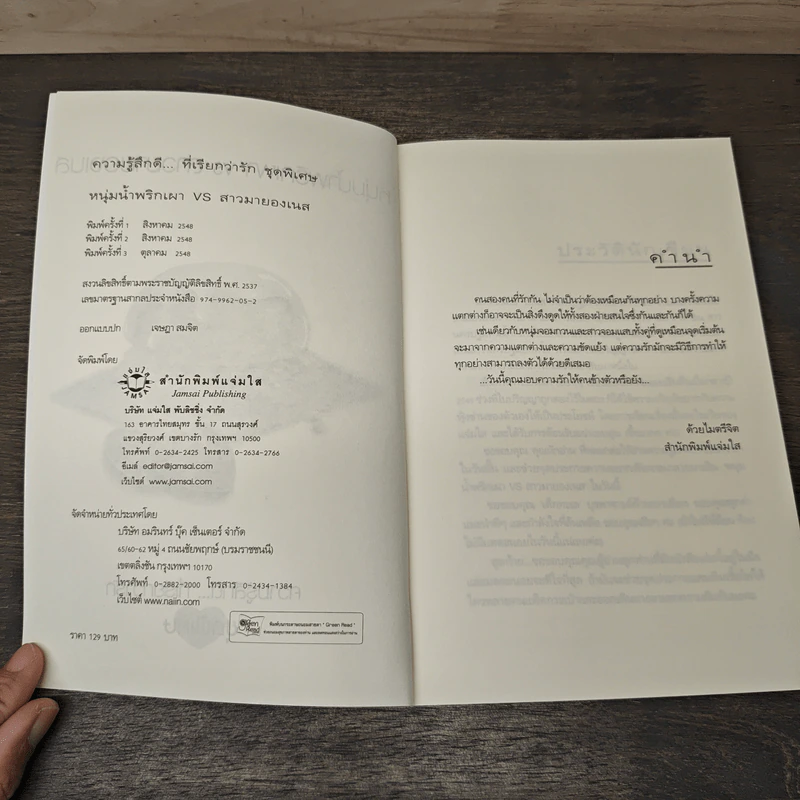 ความรู้สึกดี... ที่เรียกว่ารัก ชุดพิเศษ
หนุ่มน้ำพริกเผา VS สาวมายองเนส
พิมพ์ครั้งที่ 1 สิงหาคม 2548
พิมพ์ครั้งที่ 2 สิงหาคม 2548
พิมพ์ครั้งที่ 3 ตุลาคม 2548
สงวนลิขสิทธิ์ตามพระราชบัญญัติลิขสิทธิ์ พ.ศ. 2537
เลขมาตรฐานสากลประจำหนังสือ 974-9962-05-2
ออกแบบปก เจษฎา สมจิต
จัดพิมพ์โดย
สำนักพิมพ์แจ่มใส
Jamsai Publishing
บริษัท แจ่มใส พับลิชชิ่ง จำกัด
163 อาคารไทยสมุทร ชั้น 17 ถนนสุรวงศ์
แขวงสุริยวงศ์ เขตบางรัก กรุงเทพฯ 10500
โทรศัพท์ 0-2634-2425 โทรสาร 0-2634-2766
อีเมล์ editor@jamsai.com
เว็บไซต์ www.jamsai.com
จัดจำหน่ายทั่วประเทศโดย
บริษัท อมรินทร์ บุ๊ค เซ็นเตอร์ จำกัด
65/60-62 หมู่ 4 ถนนชัยพฤกษ์ (บรมราชชนนี)
เขตตลิ่งชัน กรุงเทพฯ 10170
โทรศัพท์ 0-2882-2000 โทรสาร 0-2434-1384
เว็บไซต์ www.naiin.com
Green Read
พิมพ์บนกระดาษถนอมสายตา "Green Read"
ราคา 129 บาท
คำนำ
คนสองคนที่รักกัน ไม่จำเป็นว่าต้องเหมือนกันทุกอย่าง บางครั้งความ
แตกต่างก็อาจจะเป็นสิ่งดึงดูดให้ทั้งสองฝ่ายสนใจซึ่งกันและกันก็ได้
เช่นเดียวกับหนุ่มจอมกวนและสาวจอมแสบทั้งคู่ที่ดูเหมือนจุดเริ่มต้น
จะมาจากความแตกต่างและความขัดแย้ง แต่ความรักมักจะมีวิธีการทำให้
ทุกอย่างสามารถลงตัวได้ด้วยดีเสมอ
...วันนี้คุณมอบความรักให้คนข้างตัวหรือยัง...
ด้วยไมตรีจิต
สำนักพิมพ์แจ่มใส